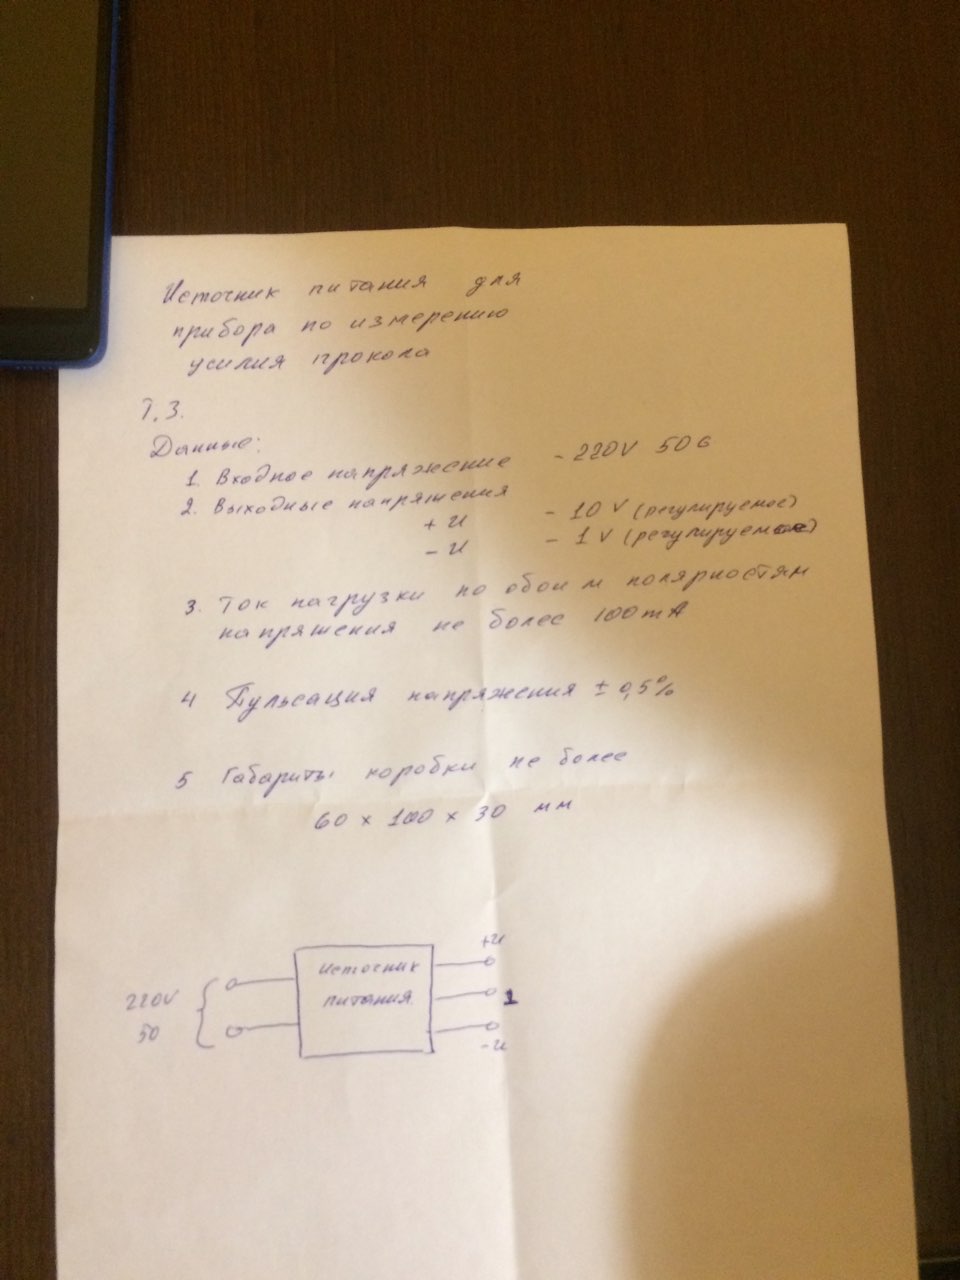 Источник питания для
прибора по измерению
усилия прокола
Т.З.
Данные:
1. Входное напряжение - 220V 50
2. Выходные напряжения
+ U - 10 V (регулируемое)
- U - 1 V (регулируемое)
3. Ток нагрузки по обоим полярностям
напряжения не более 100 mA
4 Пульсация напряжения ± 0,5%
5 Габариты коробки не более
60 x 100 x 30 мм
220V
50
Источник
питания
+U
-U